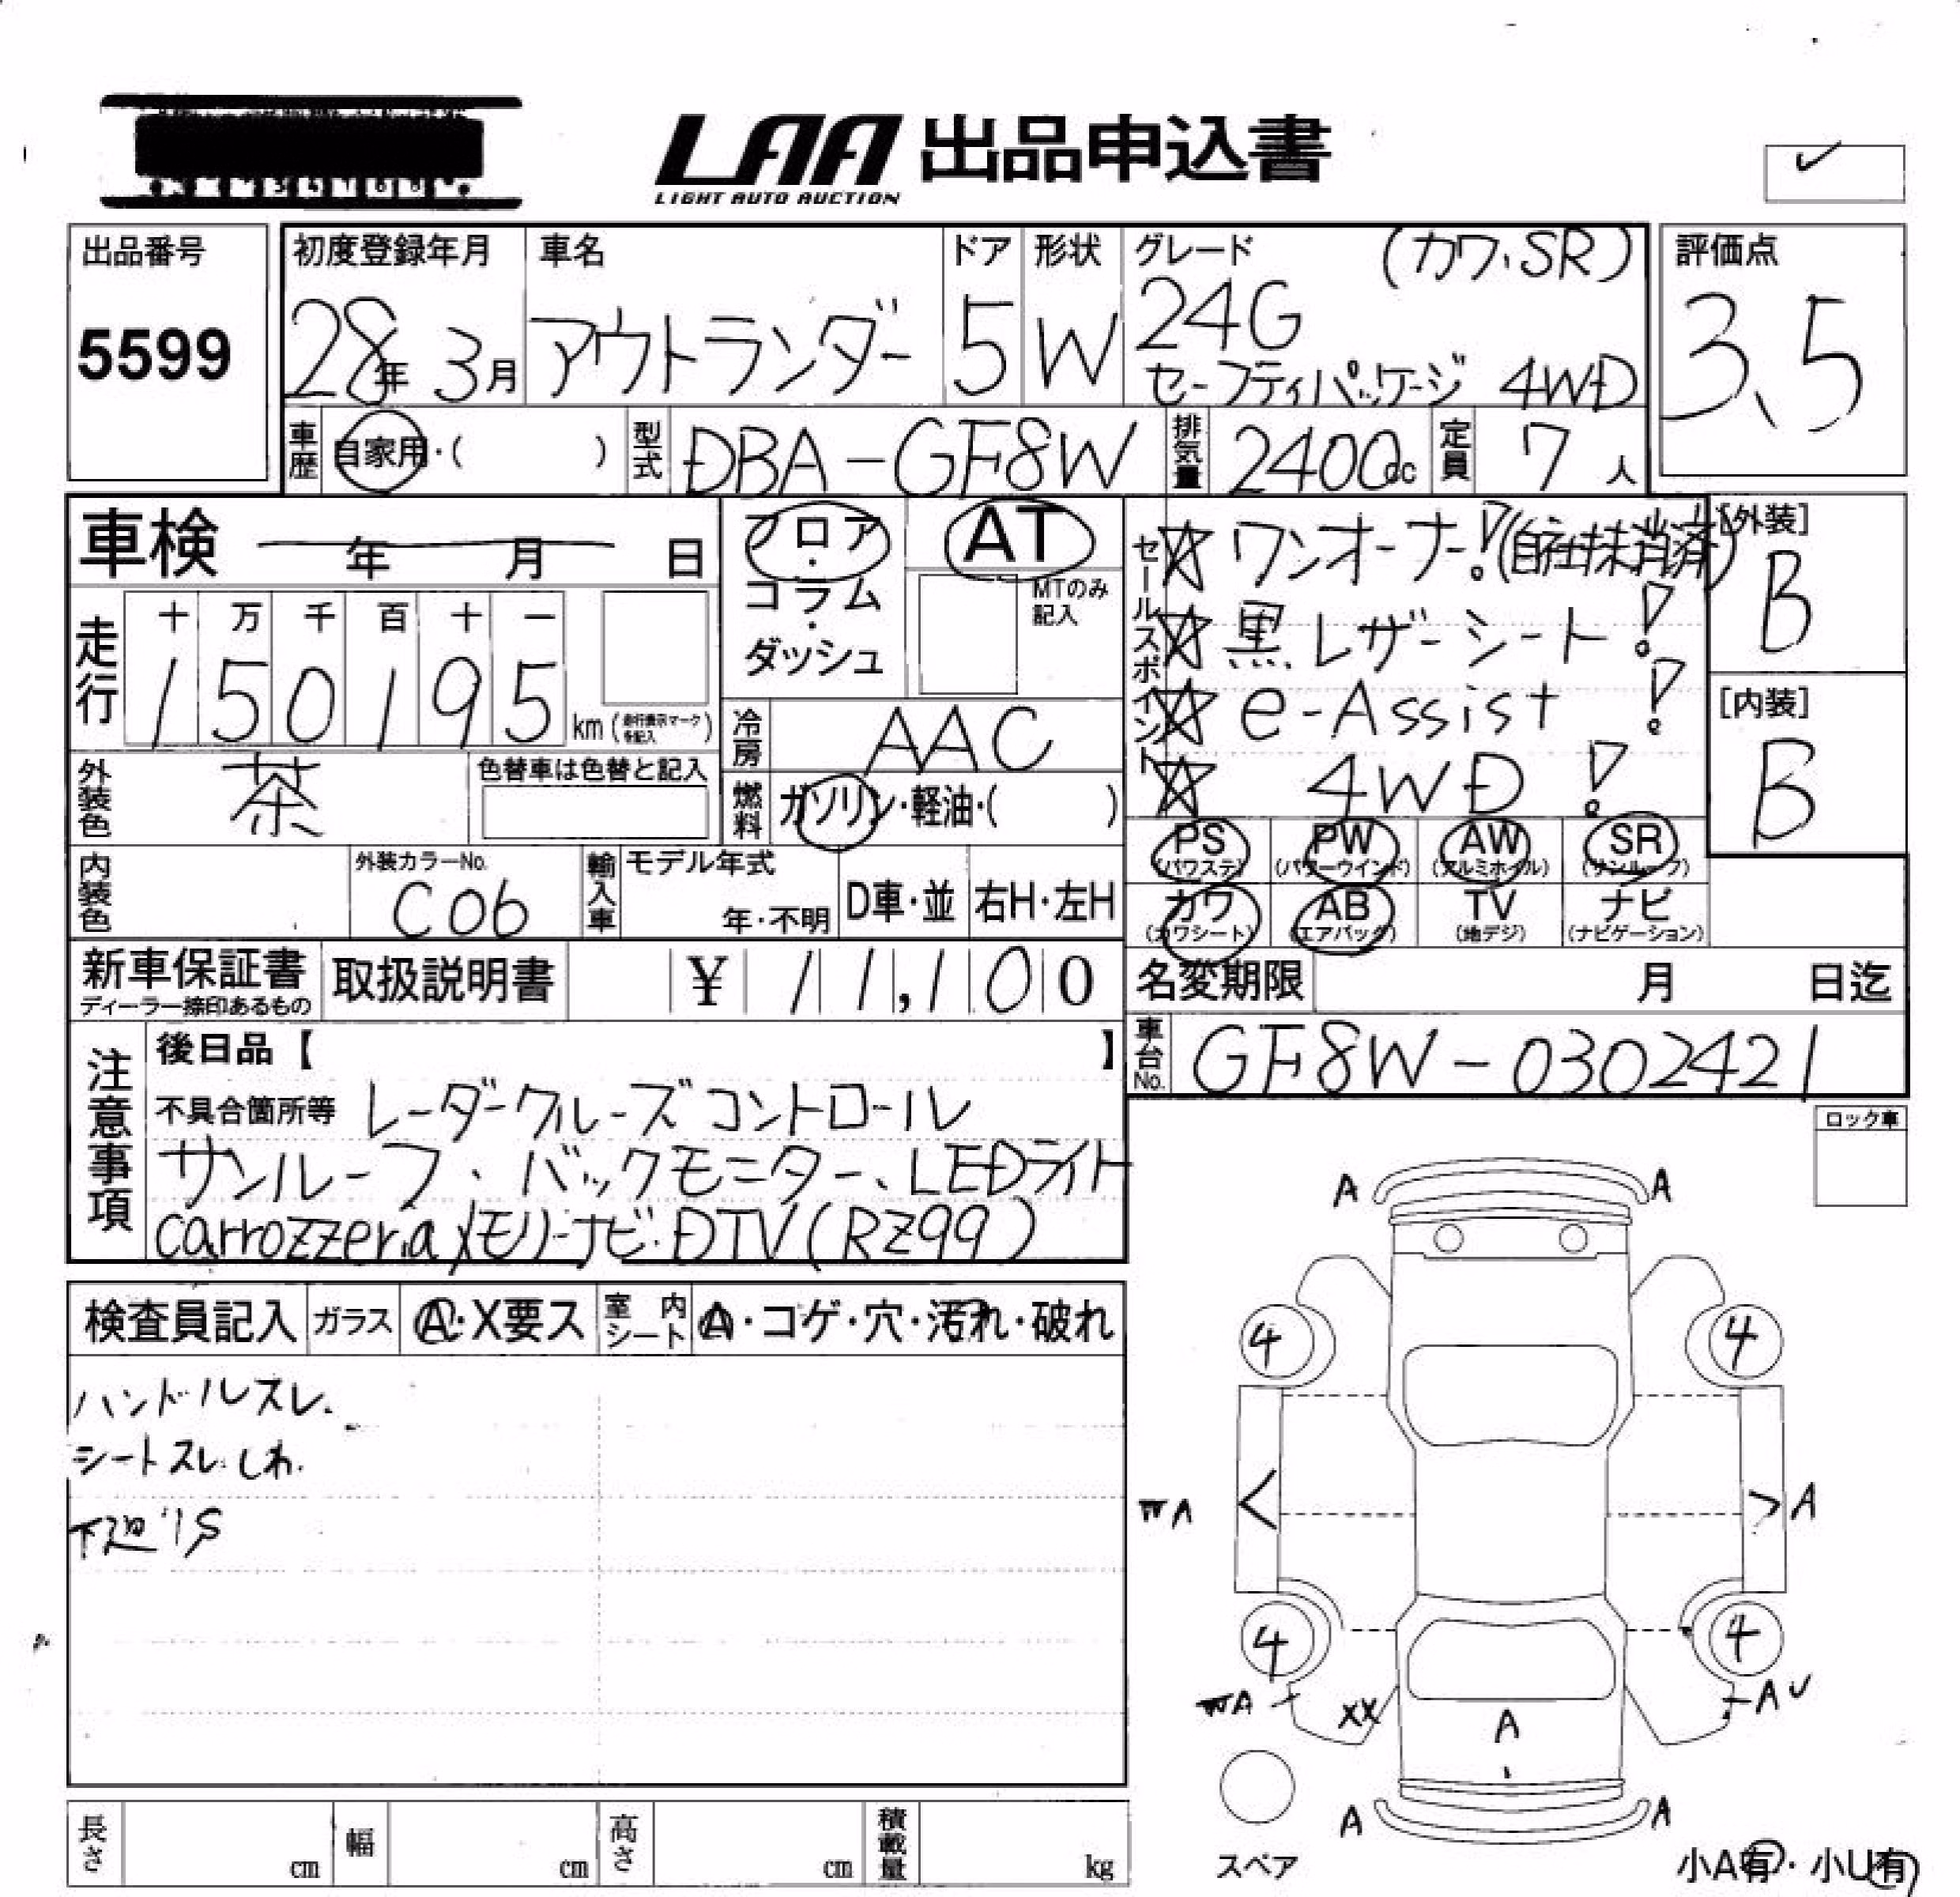 LAA 出品申込書
LIGHT AUTO AUCTION
出品番号
5599
初度登録年月
28年 3月
車名
アウトランダー
ドア
5
形状
W
グレード (カワ、SR)
24G
セーフティパッケージ 4WD
評価点
3.5
車歴 自家用・( )
型式 DBA-GF8W
排気量 2400cc
定員 7人
車検 年 月 日
走行
十 万 千 百 十 一
1 5 0 1 9 5 km (走行表示マークを記入)
フロア・コラム・ダッシュ
AT
MTのみ記入
冷房 AAC
燃料 ガソリン・軽油・( )
外装色 茶
色替車は色替と記入
内装色
外装カラーNo.
C06
輸入車
モデル年式
年・不明
D車・並
右H・左H
セールスポイント
☆ ワンオーナー!(自社未消済)
☆ 黒レザーシート!
☆ e-Assist!
☆ 4WD!
[外装]
B
[内装]
B
PS (パワステ)
PW (パワーウインド)
AW (アルミホイル)
SR (サンルーフ)
カワ (カワシート)
AB (エアバッグ)
TV (地デジ)
ナビ (ナビゲーション)
新車保証書
ディーラー捺印あるもの
取扱説明書
¥ 11,100
名変期限 月 日迄
車台No. GF8W-0302421
注意事項
後日品【 】
不具合箇所等 レーダークルーズコントロール
サンルーフ、バックモニター、LEDライト
carrozzeriaメモリーナビ・DTV(RZ99)
ロック車
検査員記入
ガラス A・X要ス
室内シート A・コゲ・穴・汚れ・破れ
ハンドルスレ.
シートスレ.しわ.
下廻サS
A A
4 4
A A
4 4
A AU
XX
A
A A
スペア
小A有・小U有
長さ cm
幅 cm
高さ cm
積載量 kg